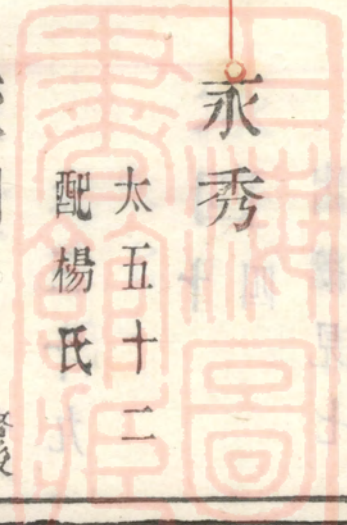 永秀
太五十二
配楊氏